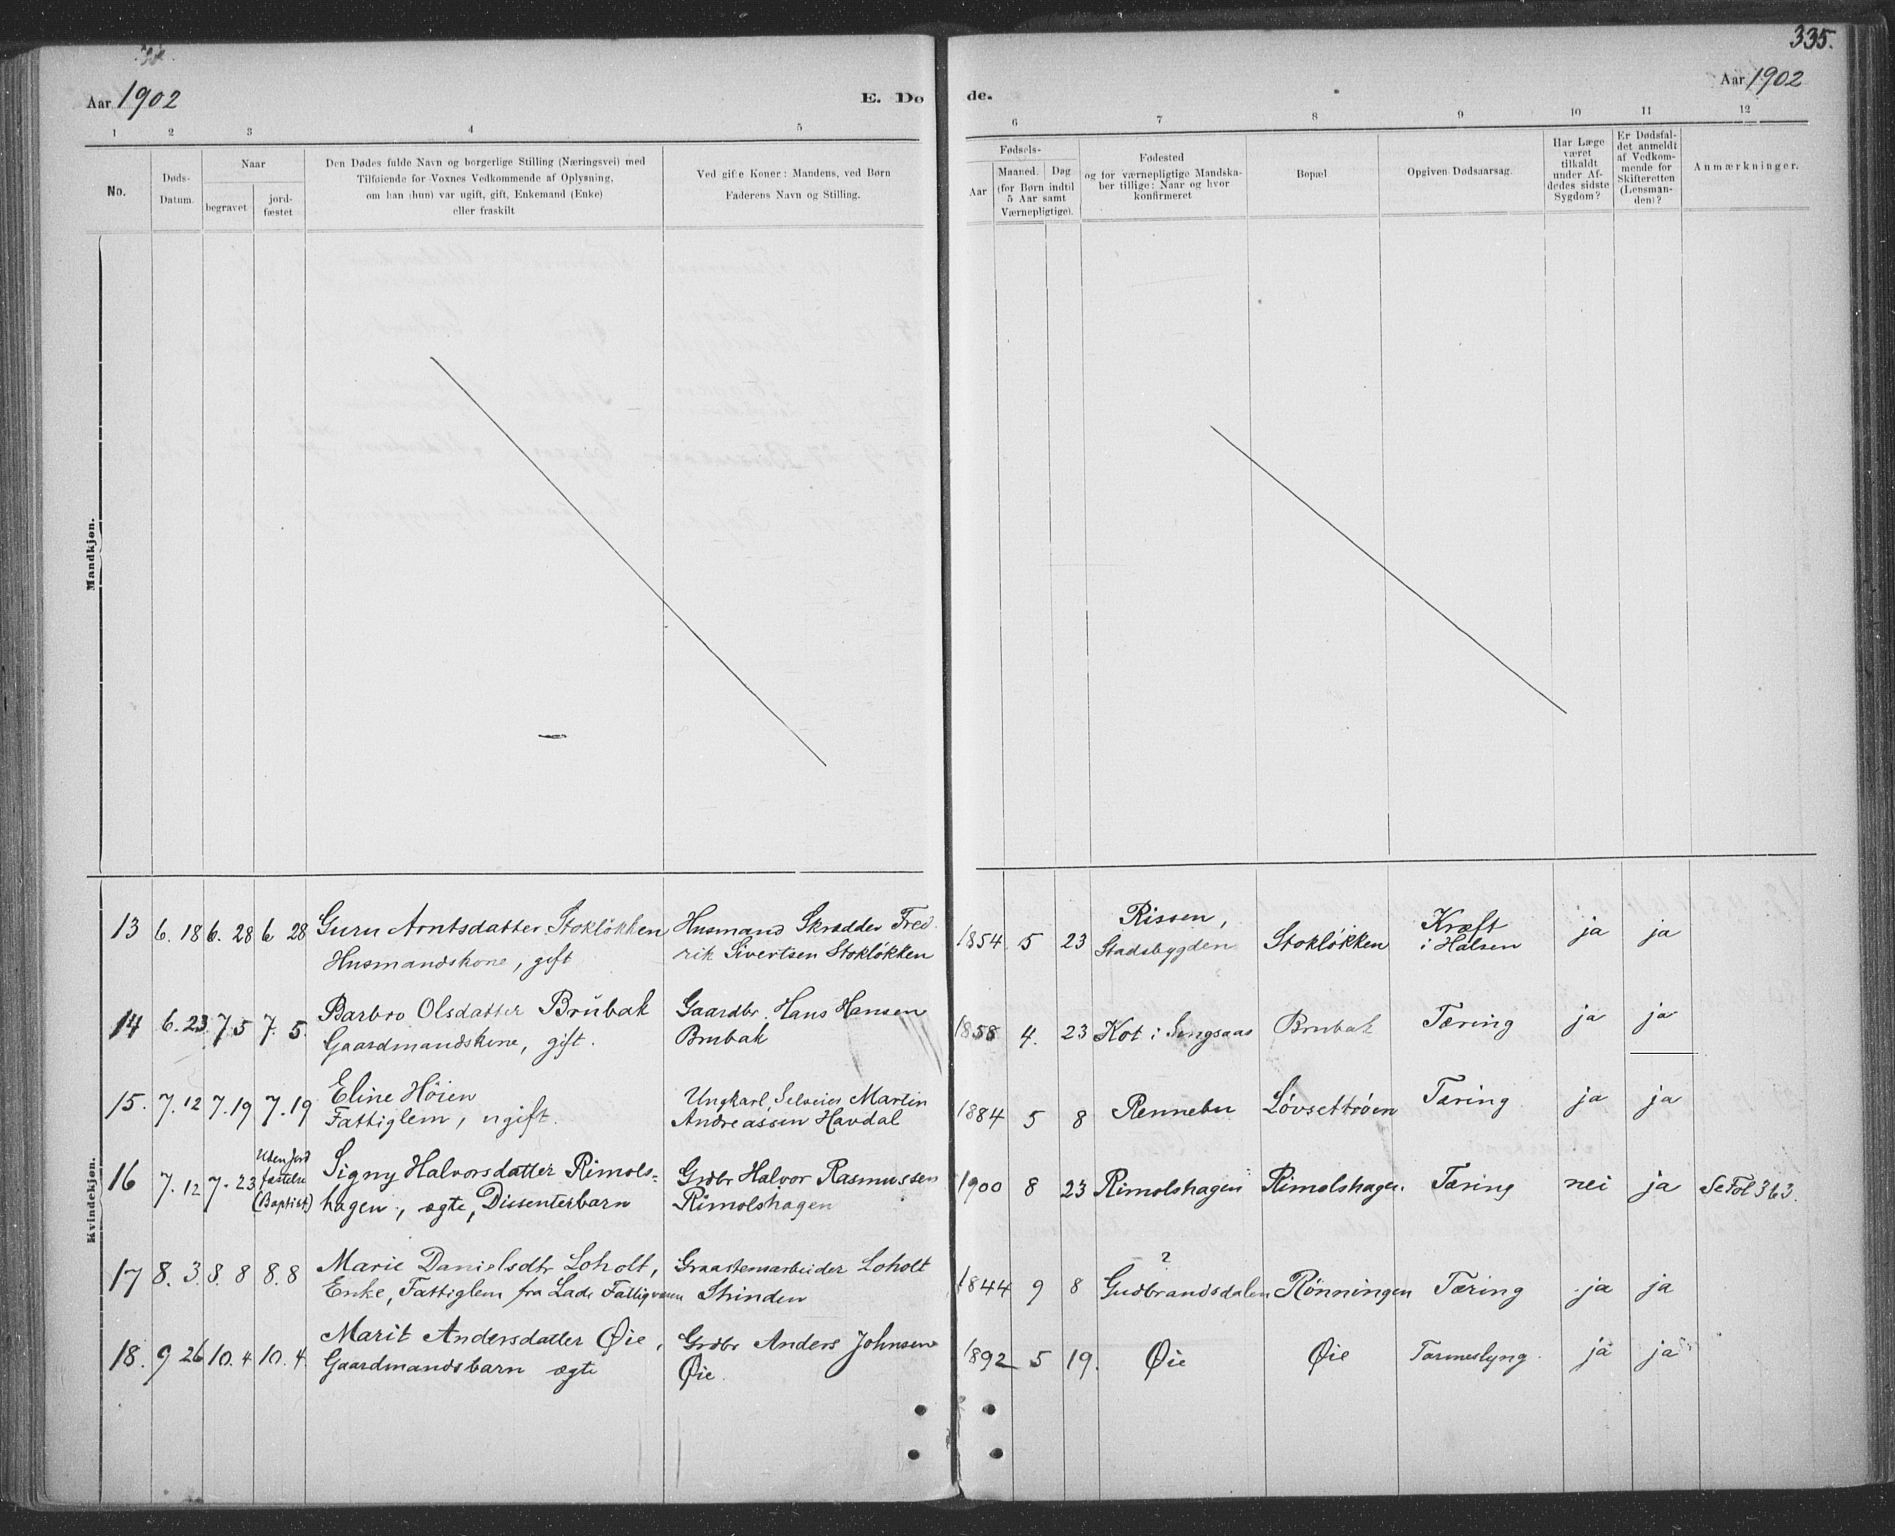 335.
Aar 1902
E. Dø
de.
Aar 1902
1 2 3 4 5 6 7 8 9 10 11 12
No.
Døds-
Datum.
Naar
begravet
jord-
fæstet
Den Dødes fulde Navn og borgerlige Stilling (Næringsvei) med
Tilføiende for Voxnes Vedkommende af Oplysning,
om han (hun) var ugift, gift, Enkemand (Enke)
eller fraskilt
Ved gifte Koner: Mandens, ved Børn
Faderens Navn og Stilling.
Fødsels-
Aar
Maaned.
Dag
(for Børn indtil
5 Aar samt
Værnepligtige).
Fødested
og for værnepligtige Mandska-
ber tillige: Naar og hvor
konfirmeret
Bopæl
Opgiven Dødsaarsag.
Har Læge
været
tilkaldt
under Af-
dødes sidste
Sygdom?
Er Dødsfal-
det anmeldt
af Vedkom-
mende for
Skifteretten
(Lensman-
den)?
Anmærkninger.
Mandkjøn.
Kvindekjøn.
13 6. 18 6. 28 6 28 Guru Arntsdatter Stokløkken Husmand Skrædder Fred 1854 5 23 Rissen, Stokløkken Kræft ja ja
Husmandskone, gift rik Sivertsen Stokløkken Stadsbygden i Halsen
14 6. 23. 7. 5 7. 5. Barbro Olsdatter Brubak Gaardbr. Hans Hansen 1858 4. 23 Kot i Singsaas Brubak Tæring ja ja
Gaardmandskone, gift. Brubak
15. 7. 12 7. 19 7. 19 Eline Höien Ungkarl, Selveier Martin 1884 5 8 Rennebu Løvsettrøen Tæring ja ja
Fattiglem, ugift. Andreassen Havdal
16 7. 12 7. 23 Uden Jord Signy Halvorsdatter Rimols- Grdbr Halvor Rasmussen 1900 8 23 Rimolshagen Rimolshagen. Tæring nei ja Se Fol 363.
fæstelse
(Baptist) hagen, ægte, Dissenterbarn Rimolshagen
17 8. 3. 8. 8 8. 8 Marie Danielsdtr Loholt, Graastensarbeider Loholt 1844 9 8 ? Rønningen Tæring ja ja
Enke, Fattiglem fra Lade Fattigvæsen Strinden Gudbrandsdalen
18. 9 26 10. 4 10. 4. Marit Andersdatter Øie, Grdbr Anders Johnsen 1892 5 19. Øie Øie Tarmeslyng ja ja
Gaardmandsbarn ægte Øie.